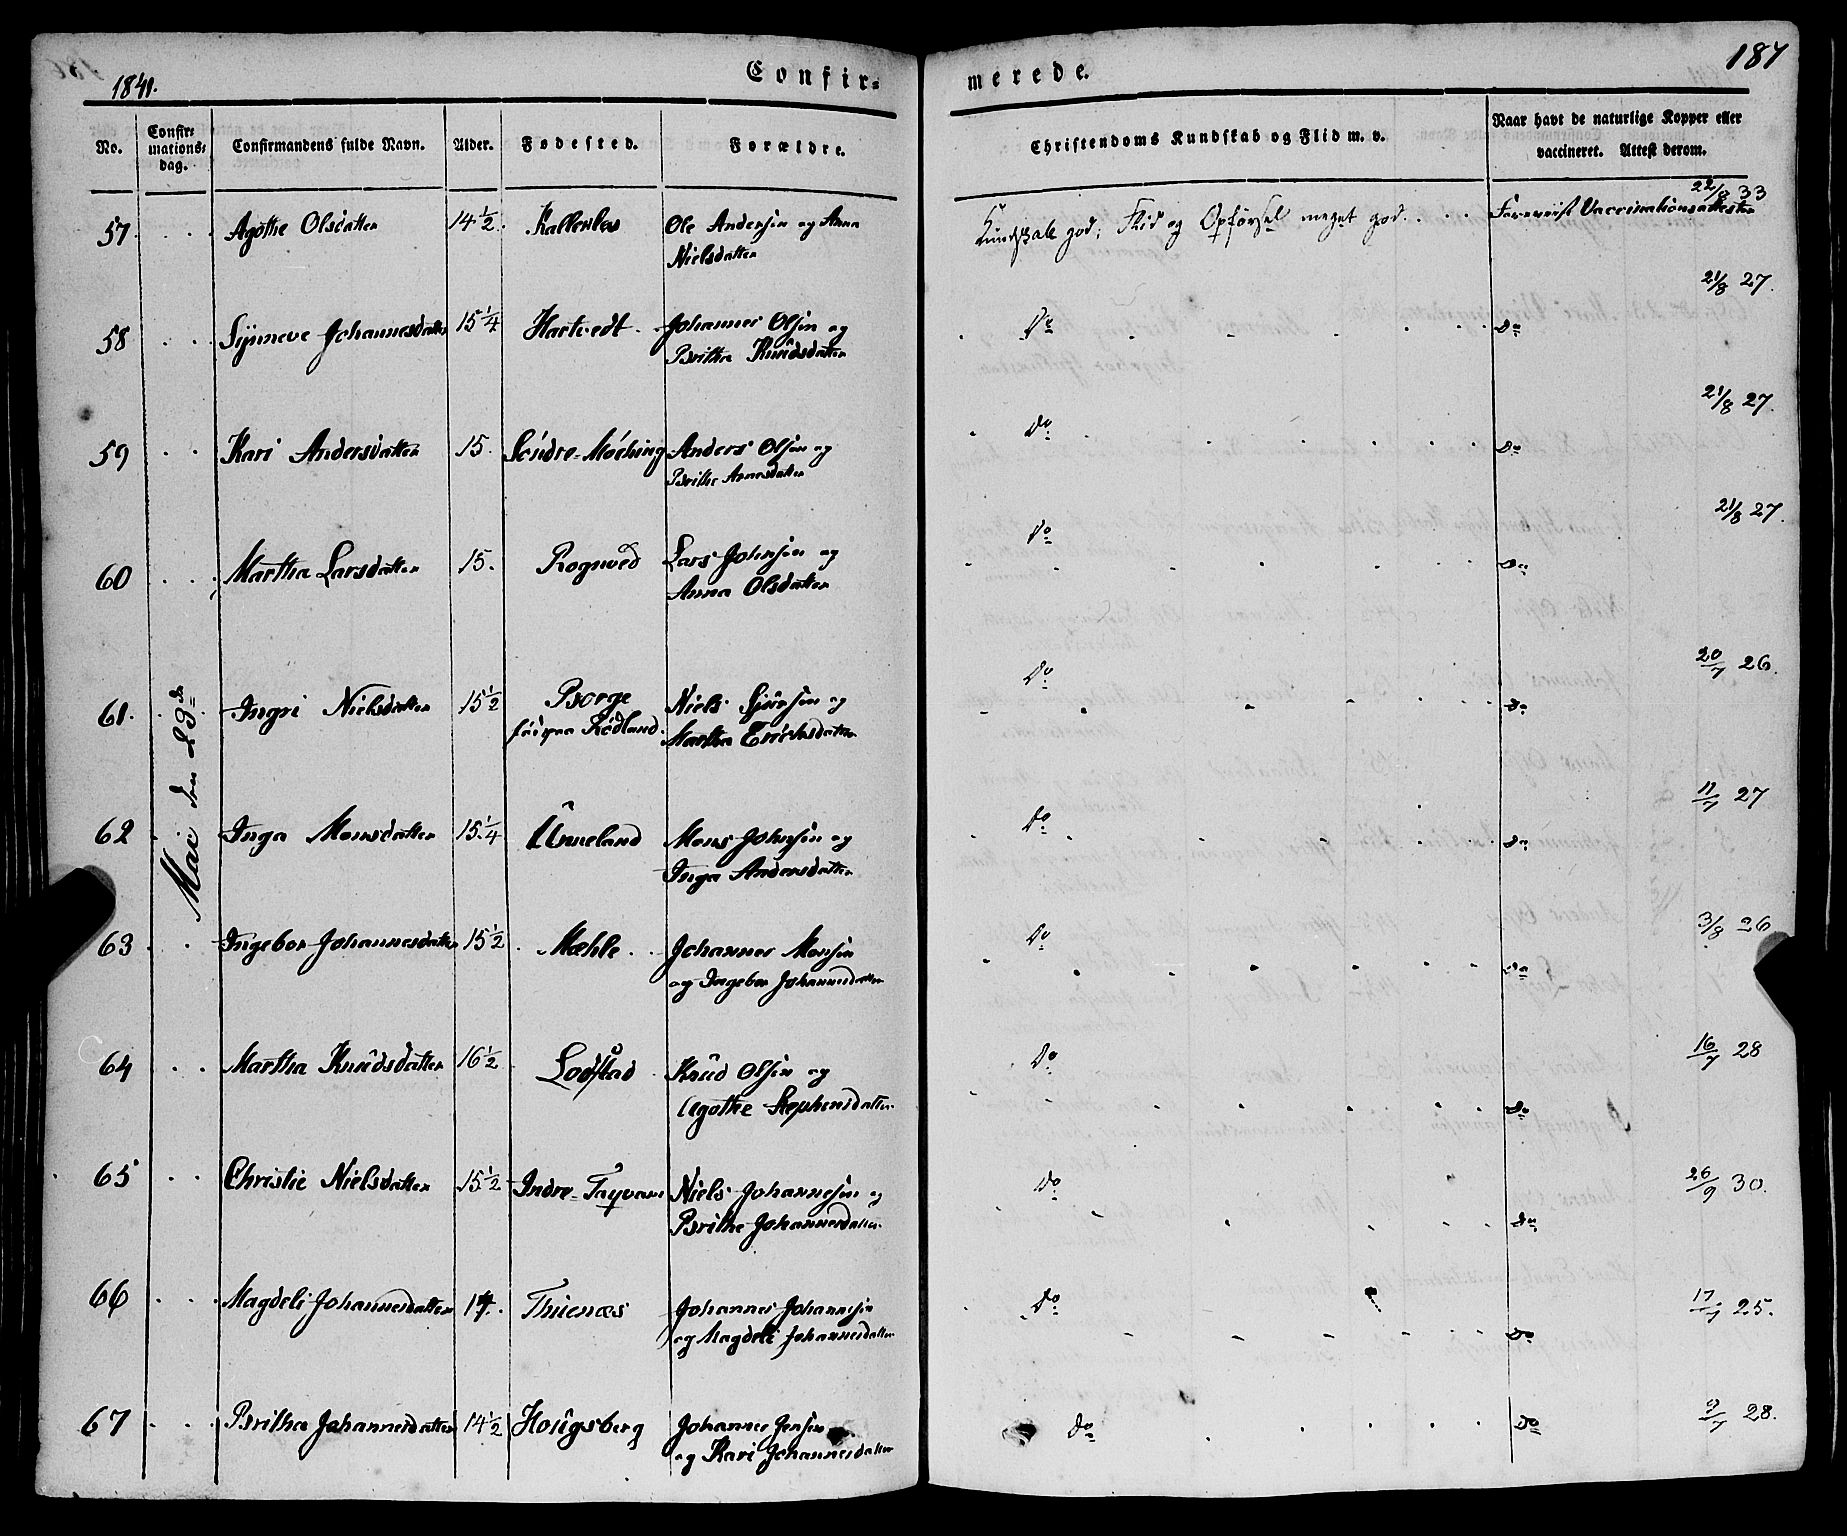 1841.
Confir=
merede.
187
No.
Confir=
mations=
dag.
Confirmandens fulde Navn.
Alder.
Fødested.
Forældre.
Christendoms Kundskab og Flid m. v.
Naar havt de naturlige Kopper eller
vaccineret. Attest derom.
Mai den 29de
57 Agathe Olsdatter 14 1/2 Ole Andersen og Anna
Nielsdatter
Kundskab god; Flid og Opførsel meget god. Foreviist Vaccinationsattester 22/8 33
58 Synneve Johannesdatter 15 1/4 Hartvedt Johannes Olsen og
Britha Knudsdatter
Do Do 21/8 27.
59 Kari Andersdatter 15. Søndre=Møching Anders Olsen og
Brithe Arnesdatter
Do Do 21/8 27.
60 Martha Larsdatter 15. Rognved Lars Johnsen og
Anna Olsdatter
Do Do 21/8 27.
61. Ingri Nielsdatter 15 1/2 Borge
paa Rødland. Niels Sjursen og
Martha Erichsdatter
Do Do 20/7 26.
62 Inga Monsdatter 15 1/4 Unneland Mons Johnsen og
Inga Andersdatter
Do Do 11/7 27
63 Ingebor Johannesdatter 15 1/2 Mæhle Johannes Monsen
og Ingebor Johannesdatter
Do Do 3/8 26
64 Martha Knudsdatter 16 1/2 Lodstad Knud Olsen og
Agathe Stephensdatter
Do Do 16/7 28
65 Christie Nielsdatter 15 1/2 Indre=Niels Johannesen og
Brithe Johannesdatter
Do Do 26/9 30.
66 Magdeli Johannesdatter 14. Thuenæs Johannes Johannesen
og Magdeli Johannesdatter
Do Do 17/7 25.
67 Britha Johannesdatter 14 1/2 Hougsberg Johannes Jensen
og Kari Johannesdatter
Do Do 9/7 28.